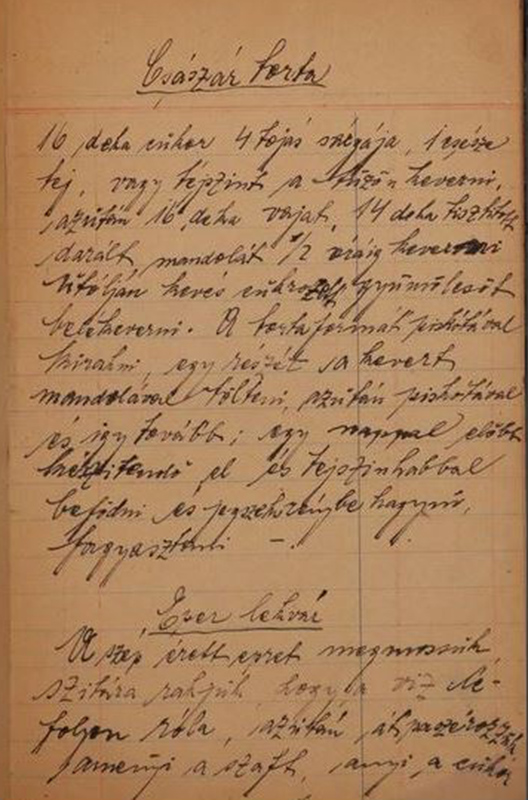 Császár torta
16 deka cukor 4 tojás sárgája, 1 csésze
tej, vagy tejszint a tűzön keverni,
azután 16 deka vajat, 14 deka tisztitott
darált mandolát 1/2 óráig keverni
Utólján kevés cukrozott gyümölcsöt
belekeverni. A tortaformát piskótával
kirakni, egy részét a kevert
mandolával tölteni, azután piskótával
és igy tovább; egy nappal előbb
készitendő el és tejszinhabbal
befödni és jegszekrénybe hagyni,
fagyasztani —.
Eper lekvár
A szép érett epret megmossuk
szitára rakjuk, hogy a viz le-
folyon róla, azután átpaszérozzuk
amenyi a szaft, anyi a cukor